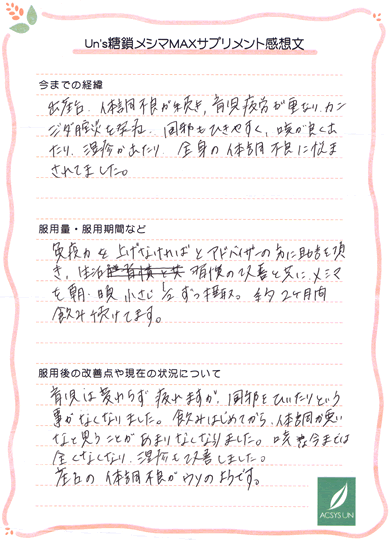 Un's糖鎖メシマMAXサプリメント感想文
今までの経緯
出産后、体調不良が続き、育児疲労が重なり、カン
ジダ膣炎を発症、風邪もひきやすく、咳が良くあ
たり、湿疹があたり、全身の体調不良に悩ま
されてました。
服用量・服用期間など
免疫力を上げなければとアドバイザーの方に助言を頂
き、生活習慣の改善と共に、メシマ
を朝・晩 小さじ1/2ずつ摂取。約2ヶ月間
飲み続けてます。
服用後の改善点や現在の状況について
育児は変わらず疲れますが、風邪をひいたりという
事がなくなりました。飲みはじめてから、体調が悪い
なと思うことがあまりなくなりました。咳も今までは
全くでなくなり、湿疹も改善しました。
産后の体調不良がウソのようです。
ACSYS UN